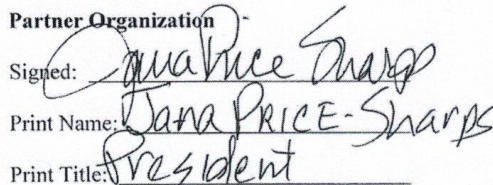 Partner Organization
Signed: Jana Price Sharps
Print Name: Jana PRICE-Sharps
Print Title: President